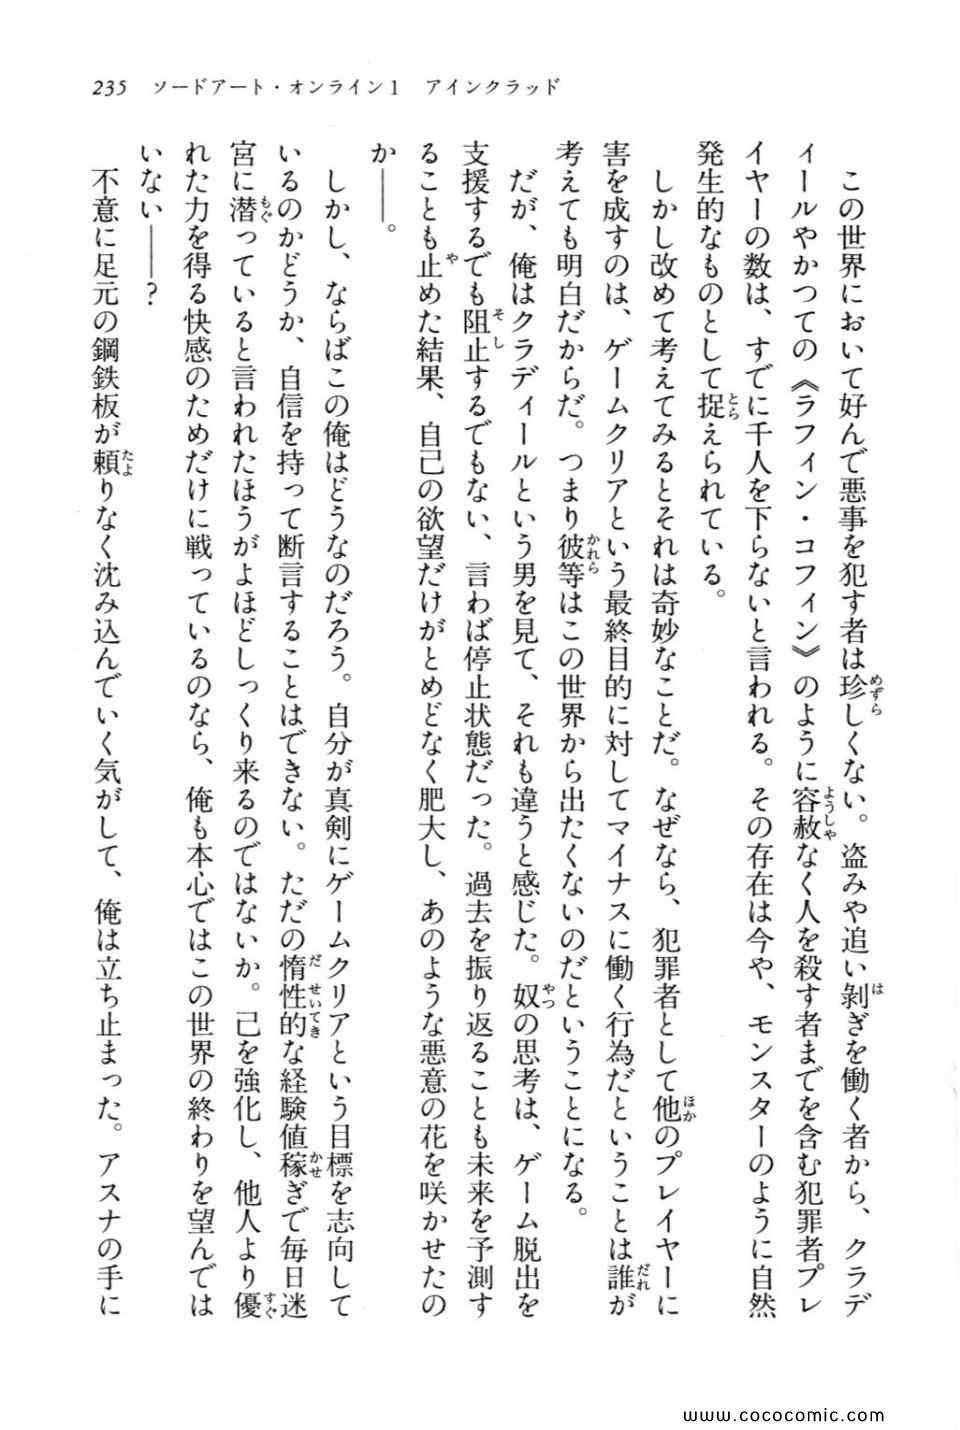 235 ソードアート・オンライン1 アインクラッド
この世界において好んで悪事を犯す者は珍しくない。盗みや追い剝ぎを働く者から、クラデ
ィールやかつての《ラフィン・コフィン》のように容赦なく人を殺す者までを含む犯罪者プレ
イヤーの数は、すでに千人を下らないと言われる。その存在は今や、モンスターのように自然
発生的なものとして捉えられている。
しかし改めて考えてみるとそれは奇妙なことだ。なぜなら、犯罪者として他のプレイヤーに
害を成すのは、ゲームクリアという最終目的に対してマイナスに働く行為だということは誰が
考えても明白だからだ。つまり彼等はこの世界から出たくないのだということになる。
だが、俺はクラディールという男を見て、それも違うと感じた。奴の思考は、ゲーム脱出を
支援するでも阻止するでもない、言わば停止状態だった。過去を振り返ることも未来を予測す
ることも止めた結果、自己の欲望だけがとめどなく肥大し、あのような悪意の花を咲かせたの
か――。
しかし、ならばこの俺はどうなのだろう。自分が真剣にゲームクリアという目標を志向して
いるのかどうか、自信を持って断言することはできない。ただの惰性的な経験値稼ぎで毎日迷
宮に潜っていると言われたほうがよほどしっくり来るのではないか。己を強化し、他人より優
れた力を得る快感のためだけに戦っているのなら、俺も本心ではこの世界の終わりを望んでは
いない――?
不意に足元の鋼鉄板が頼りなく沈み込んでいく気がして、俺は立ち止まった。アスナの手に
www.cococomic.com